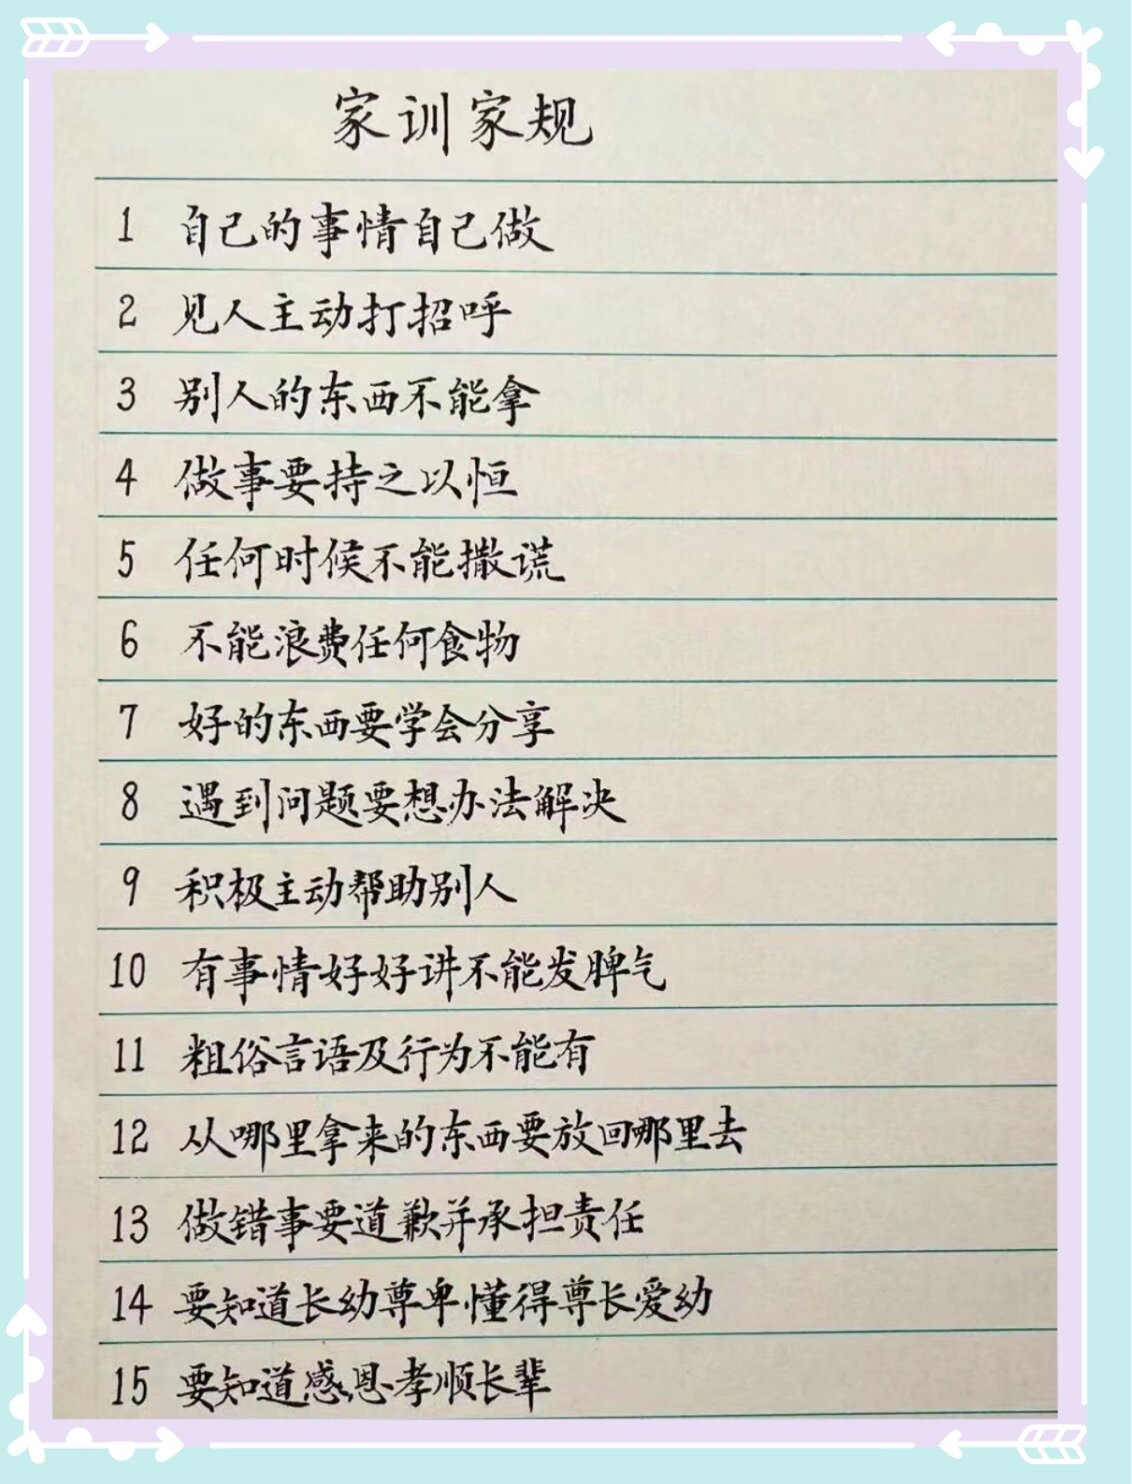 家训家规
1 自己的事情自己做
2 见人主动打招呼
3 别人的东西不能拿
4 做事要持之以恒
5 任何时候不能撒谎
6 不能浪费任何食物
7 好的东西要学会分享
8 遇到问题要想办法解决
9 积极主动帮助别人
10 有事情好好讲不能发脾气
11 粗俗言语及行为不能有
12 从哪里拿来的东西要放回哪里去
13 做错事要道歉并承担责任
14 要知道长幼尊卑懂得尊长爱幼
15 要知道感恩孝顺长辈